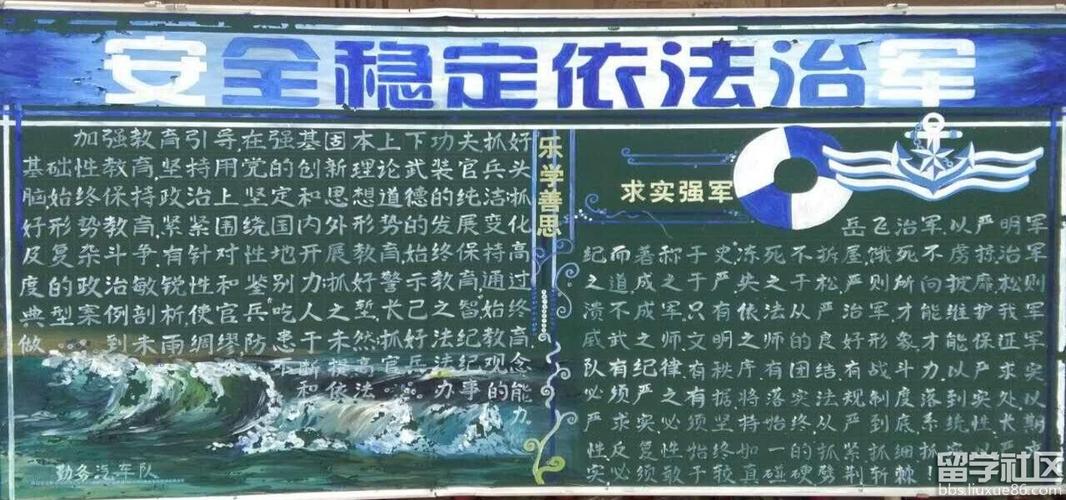 安全稳定依法治军
加强教育引导,在强基固本上下功夫抓好
基础性教育,坚持用党的创新理论武装官兵头
脑始终保持政治上坚定和思想道德的纯洁抓
好形势教育,紧紧围绕国内外形势的发展变化
及复杂斗争,有针对性地开展教育,始终保持高
度的政治敏锐性和鉴别力抓好警示教育通过
典型案例剖析,使官兵吃人之堑长己之智始终
做 到未雨绸缪,防患于未然抓好法纪教育,
不断提高官兵法纪观念
和依法 办事的能
力。
勤务汽车队
乐学善思
求实强军
岳飞治军以严明军
纪而著称于史,冻死不拆屋,饿死不虏掠治军
之道,成之于严失之于松严则所向披靡松则
溃不成军.只有依法从严治军,才能维护我军
威武之师文明之师的良好形象,才能保证军
队有纪律有秩序.有团结有战斗力以严求实
必须严之有据,将落实法规制度落到实处,以
严求实必须坚持始终从严到底系统性长期
性反复性始终如一的抓紧抓细抓实以严
实,必须敢于较真碰硬劈荆斩棘!
留学社区
bbs.liuxue86.com